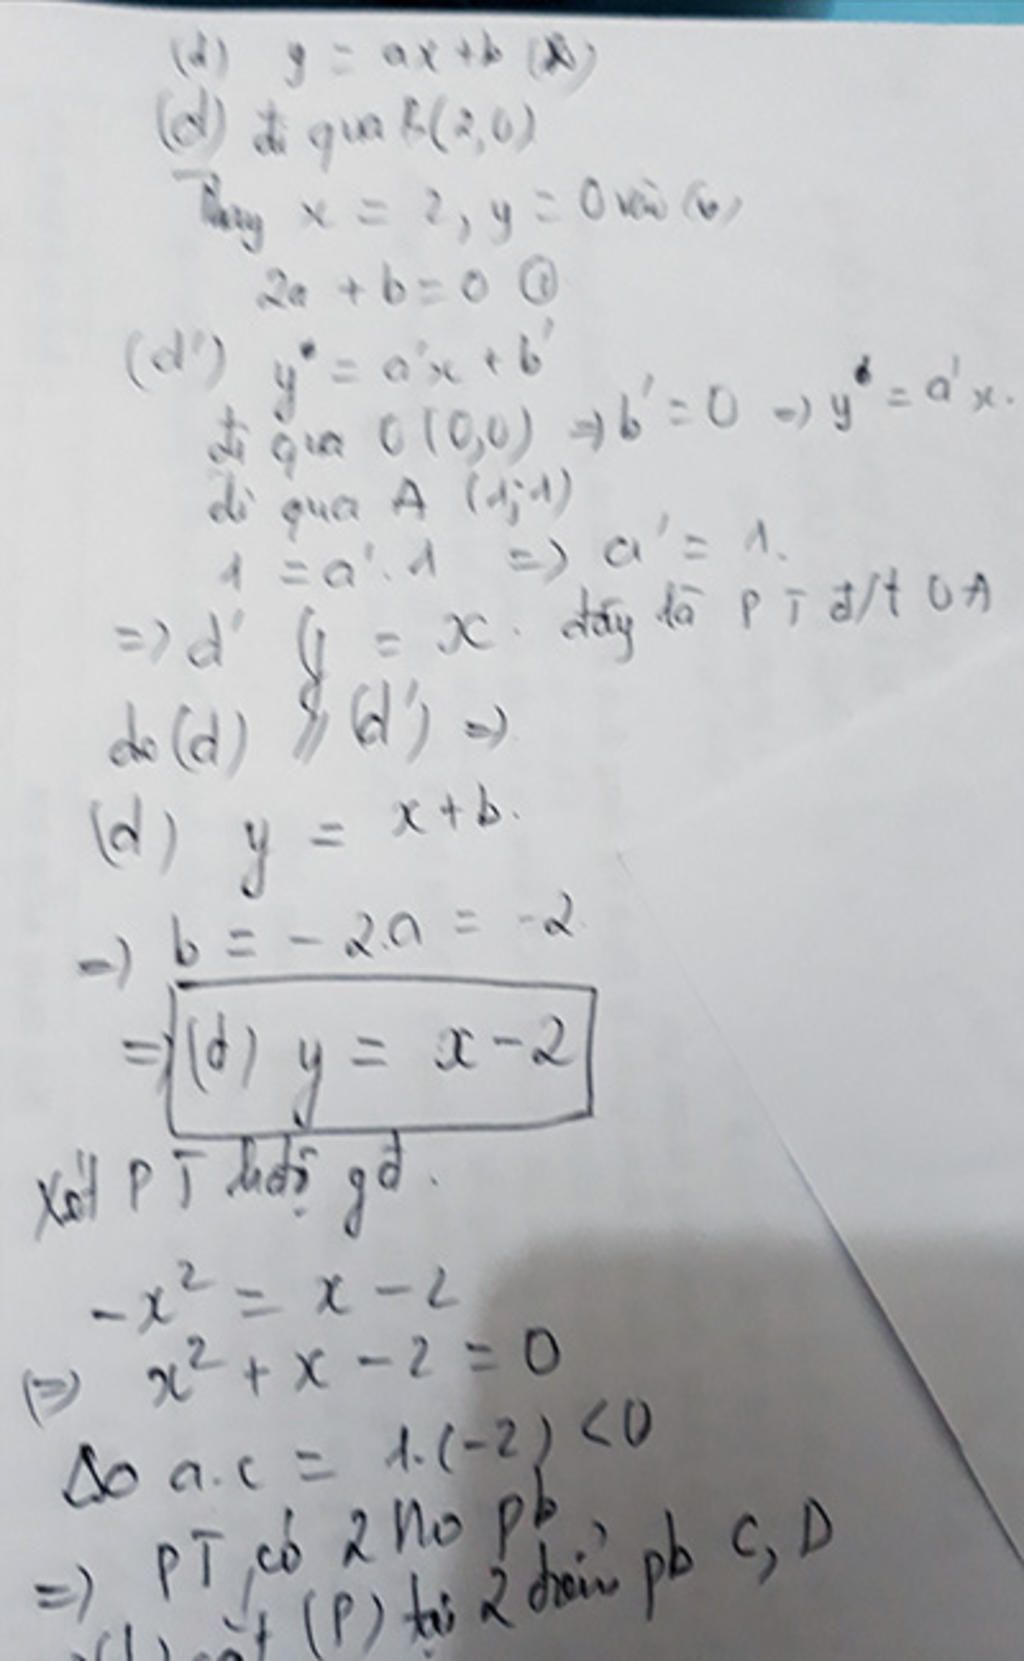 (d) y = ax + b
(d) đi qua B(2,0)
Thay x = 2, y = 0 vào
2a + b = 0 ①
(d') y = a'x + b'
đi qua O(0,0) => b' = 0 => y = a'x.
đi qua A (1;1)
1 = a'.1 => a' = 1.
=> d' y = x. đây là PT đ/t OA
do (d) // (d') =>
(d) y = x + b.
=> b = - 2.a = -2
=> (d) y = x - 2
Xét PT hđộ gđ.
-x² = x - 2
(=> x² + x - 2 = 0
Do a.c = 1.(-2) < 0
=> PT có 2 no pb
cắt (P) tại 2 điểm pb C, D